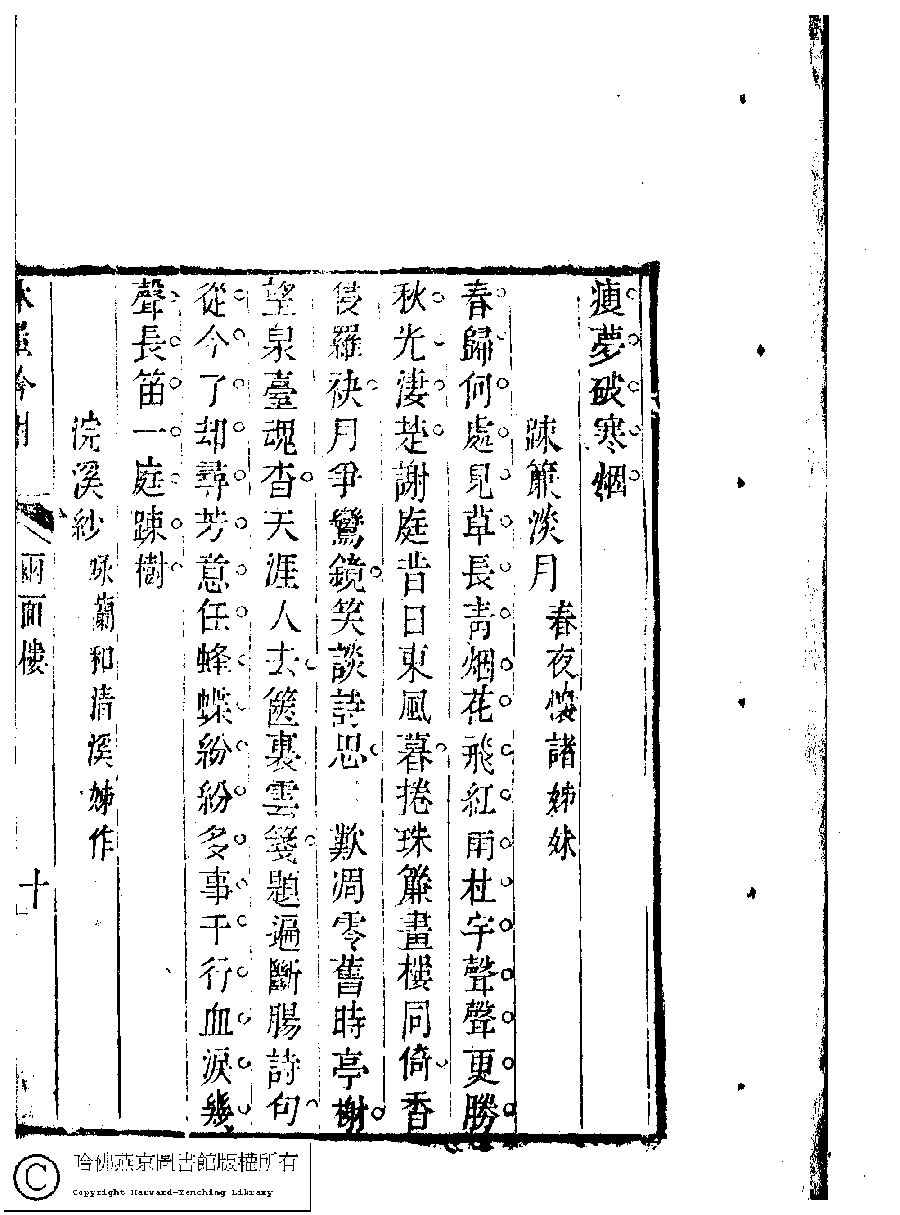 瘦夢破寒烟
踈簾淡月 春夜懷諸姊妹
春歸何處見草長青烟花飛紅雨杜宇聲聲更勝
秋光淒楚謝庭昔日東風暮捲珠簾畫樓同倚香
侵羅袂月爭鸞鏡笑談詩思 歎凋零舊時亭榭
望泉臺魂杳天涯人去篋裏雲箋題遍斷腸詩句
從今了却尋芳意任蜂蝶紛紛多事千行血淚幾
聲長笛一庭踈樹
浣溪紗 咏蘭和清溪姊作
兩面樓 十
哈佛燕京圖書館版權所有
Copyright Harvard-Yenching Library